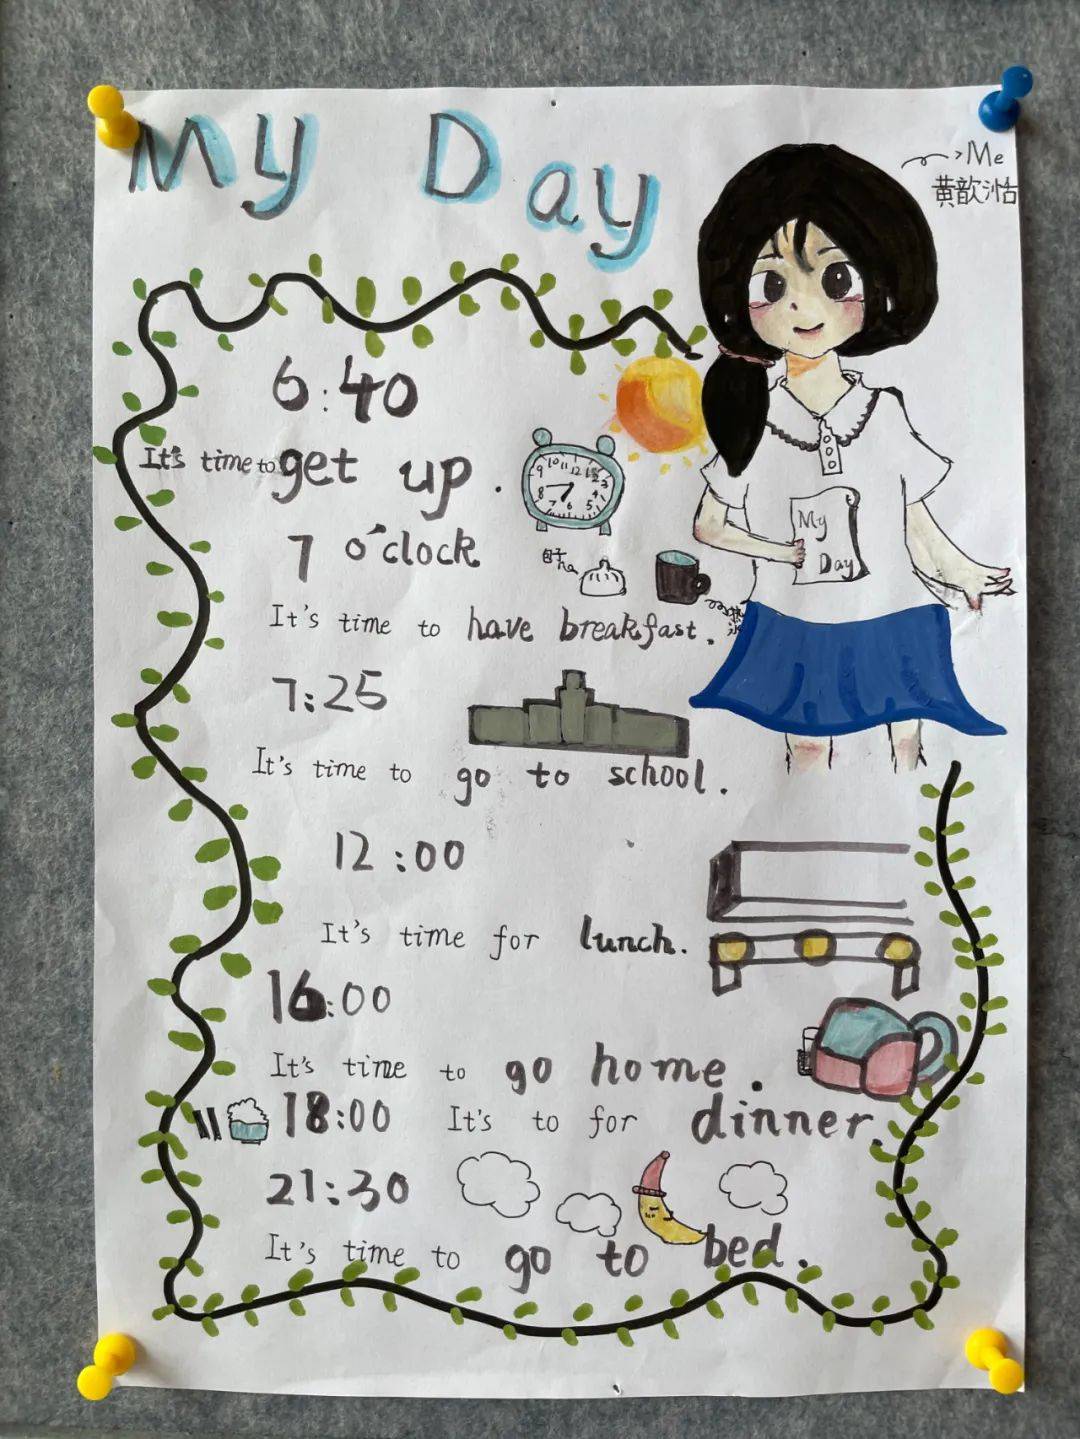 My Day
Me
黄歆沽
6:40
It's time to get up.
12 1 2 3 4 5 6 7 8 9 10 11
7 o'clock
包子
It's time to have breakfast.
My
Day
7:25
It's time to go to school.
12:00
It's time for lunch.
16:00
It's time to go home.
18:00 It's to for dinner.
21:30
It's time to go to bed.